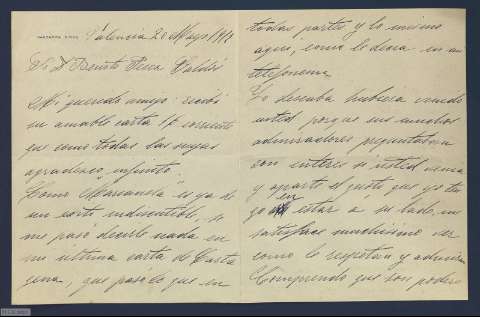 Valencia 20 Mayo 1912
Sr D Benito Perez Galdós
Mi querido amigo: recibí
su amable carta 17 corriente
que como todas las suyas
agradezco infinito.
Como "Marianela" es ya de
un éxito indiscutible, se
me pasó decirle nada en
mi última carta de Carta
gena, que pasó lo que en
todas partes y lo mismo
aquí, como le decía en mi
telefonema
Yo deseaba hubiera venido
usted porque sus muchos
admiradores preguntaban
con interés si usted venía
y aparte el gusto que yo ten
go en estar a su lado, me
satisface muchísimo ver
como le respetan y admiran
Comprendo que son podero